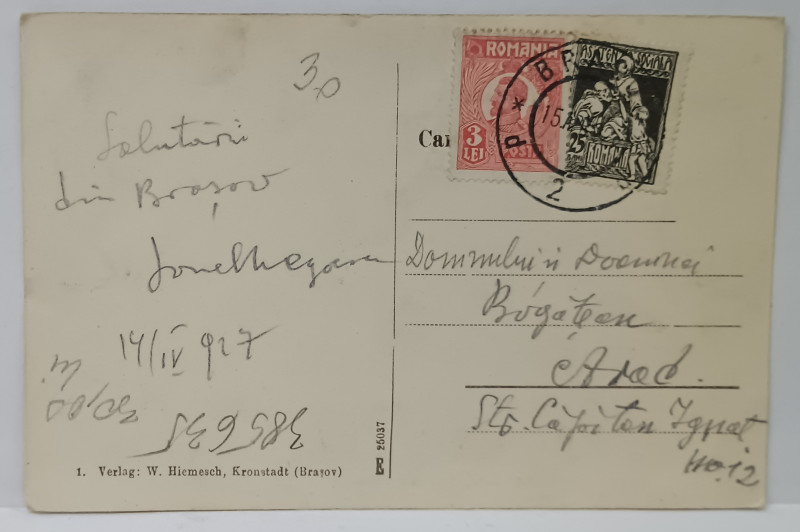 3,0
Salutări
din Brașov
14/IV 927
30,00
385635
1. Verlag: W. Hiemesch, Kronstadt (Brașov)
B 25037
ROMANIA
3
LEI
POSTA
ASISTEN SOCIALA
25
ROMANIA
* BR
15
P
2
Car
Domnului și Doamnei
Bógățan
Arad.
Str. Căpitan Ignat
no. 12